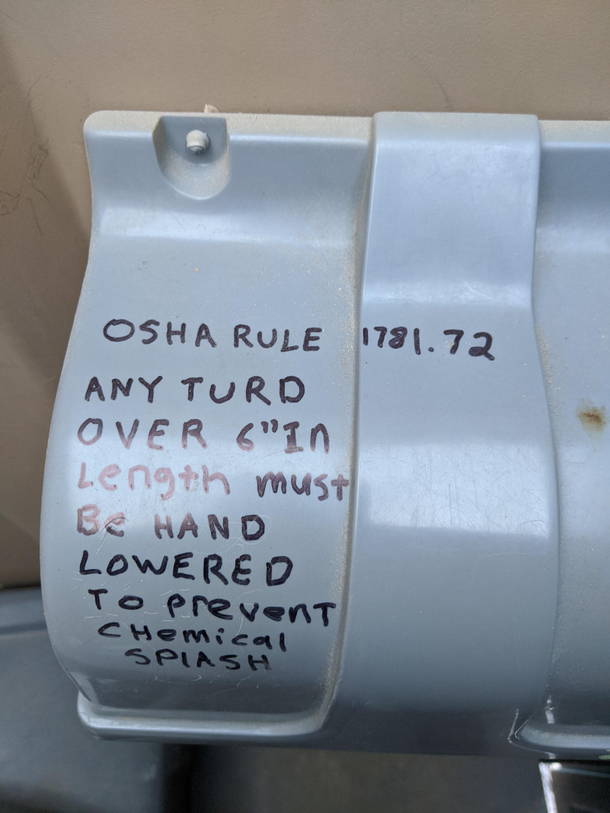 OSHA RULE 1781.72
ANY TURD
OVER 6" In
Length must
Be HAND
LOWERED
To PrevenT
CHemical
SPlASH